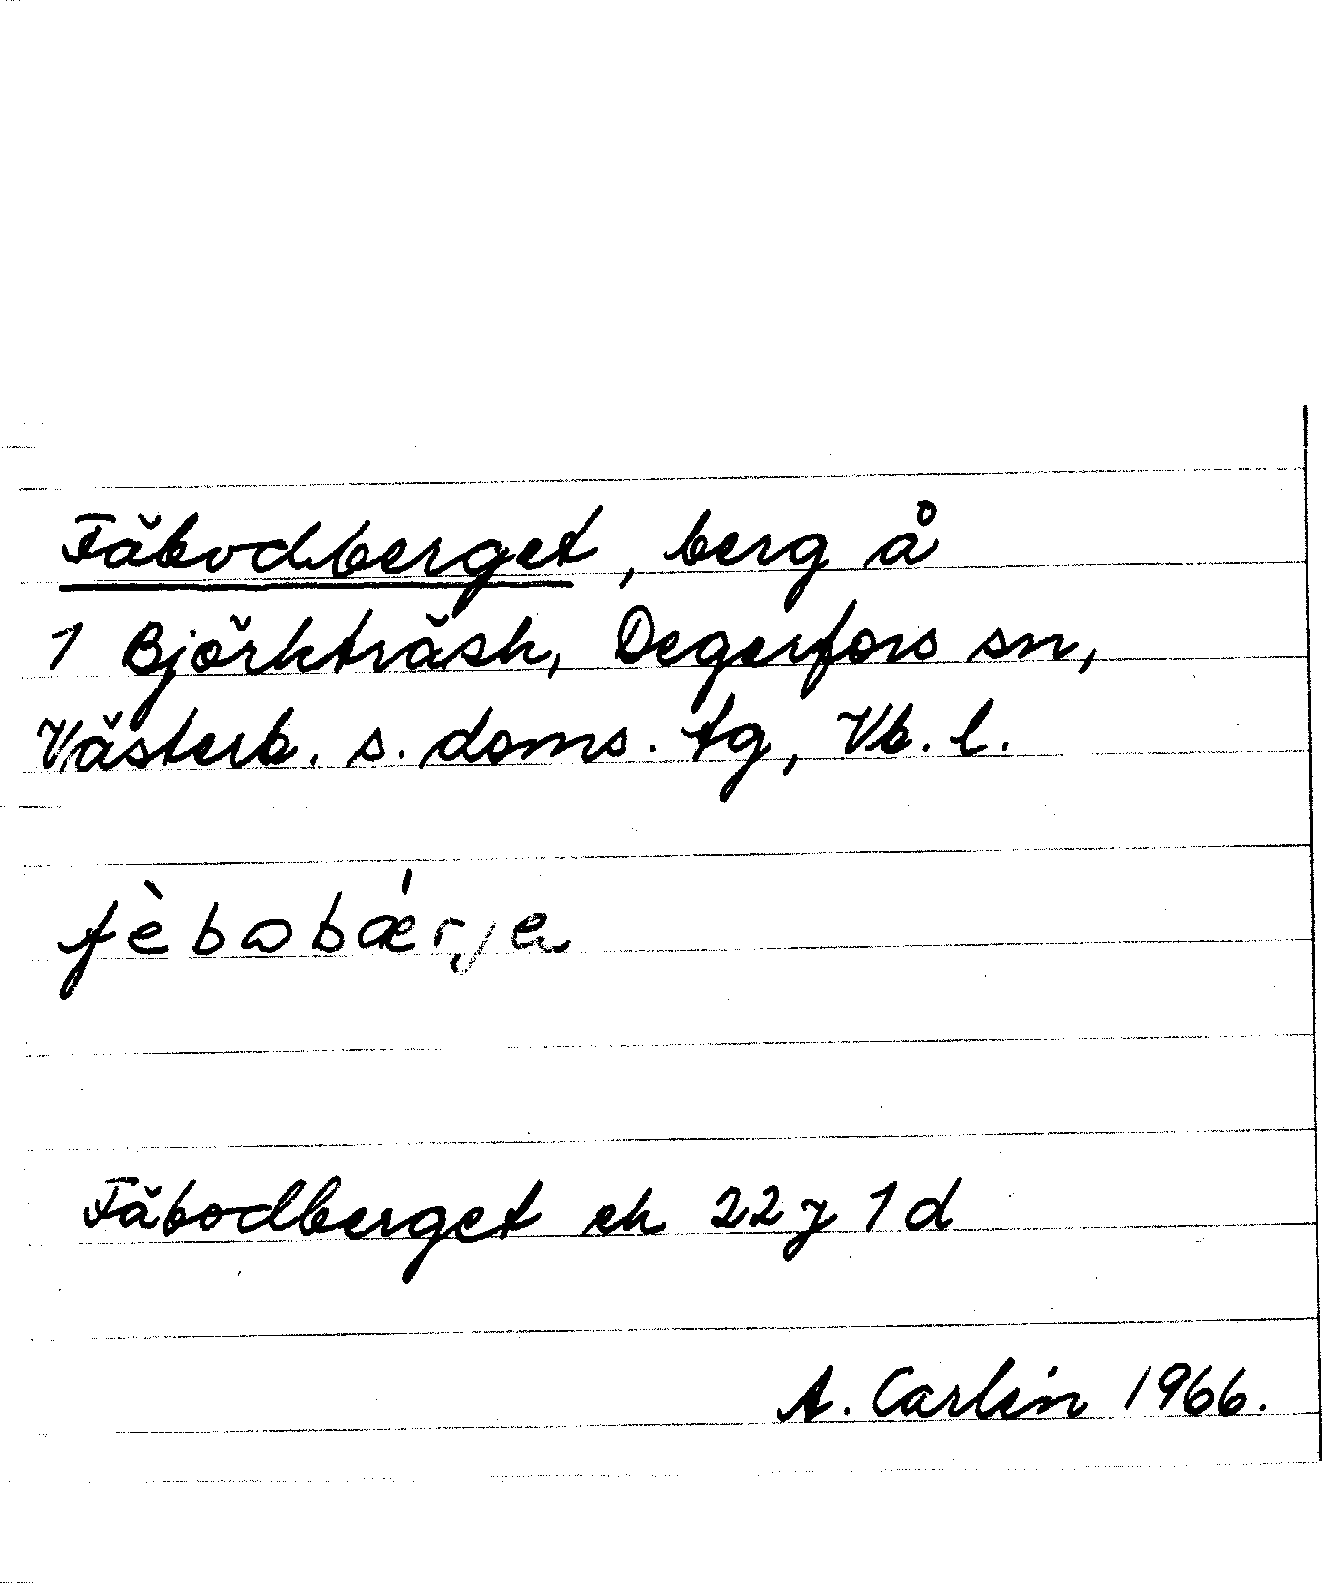 Fäbodberget, berg å
1 Björkträsk, Degerfors sn,
Västerb. s. doms. tg, Vb. l.
fèbωbǽrjɐ
Fäbodberget ek 22 J 1 d
A. Carlin 1966.